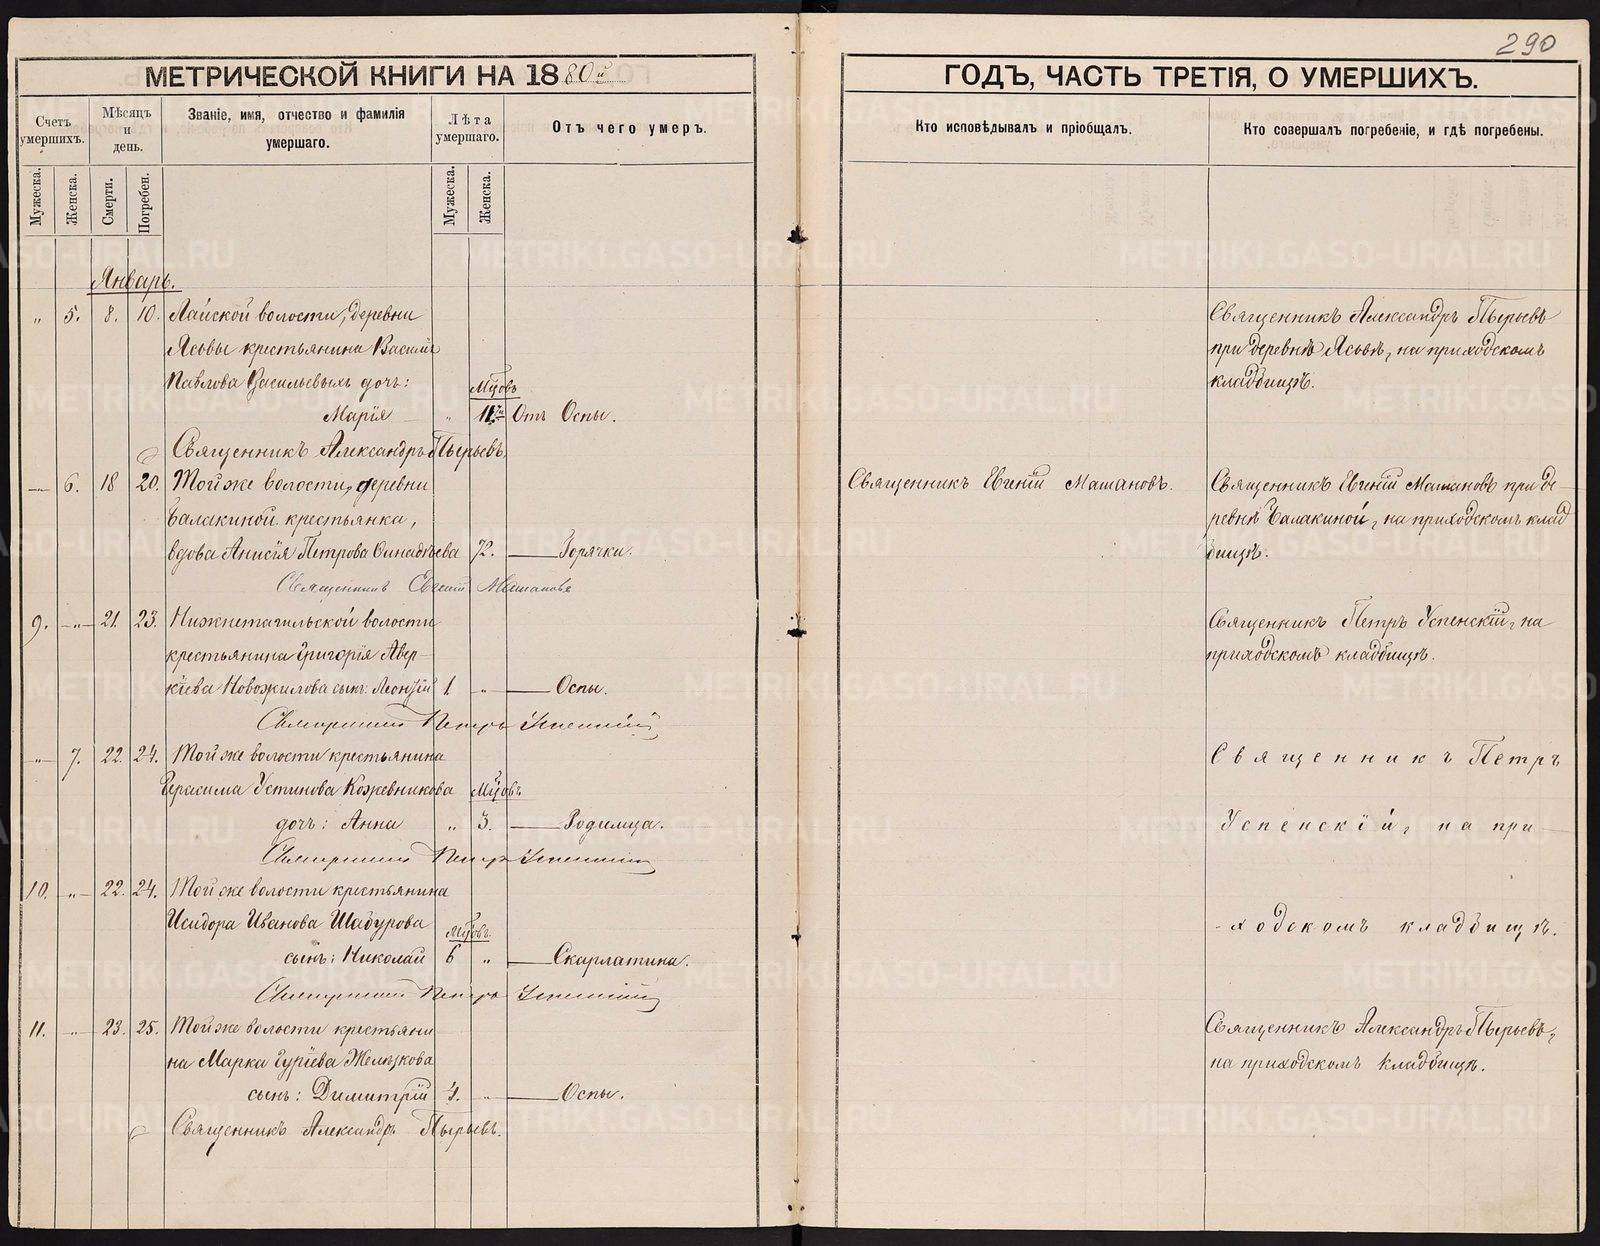 290
МЕТРИЧЕСКОЙ КНИГИ НА 1880й
ГОДЪ, ЧАСТЬ ТРЕТІЯ, О УМЕРШИХЪ.
Счетъ умершихъ.
Мѣсяцъ и день.
Званіе, имя, отчество и фамилія умершаго.
Лѣта умершаго.
Отъ чего умеръ.
Кто исповѣдывалъ и пріобщалъ.
Кто совершалъ погребеніе, и гдѣ погребены.
Мужеска.
Женска.
Смерти.
Погребен.
Мужеска.
Женска.
Январь.
„ 5. 8. 10. Лайской волости, деревни
Ясьвы крестьянина Василія
Павлова Васильевыхъ дочь: Мцовъ
Марія „ Отъ Оспы.
Священникъ Александръ Пырьевъ
Священникъ Александръ Пырьевъ
при деревнѣ Ясьвѣ, на приходскомъ
кладбищѣ.
— 6. 18 20. Той же волости, деревни
Балакиной крестьянка,
вдова Анисія Петрова 72. — Горячки.
Священникъ Евгеній Машановъ
Священникъ Евгеній Машановъ.
Священникъ Евгеній Машановъ при де
ревнѣ Балакиной, на приходскомъ клад
бищѣ.
9. -„- 21. 23. Нижнетагильской волости
крестьянина Григорія Авер-
кіева Новожилова сынъ: Леонтій 1 „ — Оспы.
Священникъ Петръ Успенскій
Священникъ Петръ Успенскій, на
приходскомъ кладбищѣ.
-„- 7. 22. 24. Той же волости крестьянина
Герасима Устинова Кожевникова Мцовъ
дочь: Анна „ 3. — Родимца.
Священникъ Петръ Успенскій
Священникъ Петръ
Успенскій, на при-
10. -„- 22. 24. Той же волости крестьянина
Исидора Иванова Шадурова Мцовъ
сынъ: Николай 6 „ — Скарлатина.
Священникъ Петръ Успенскій
-ходскомъ кладбищѣ.
11. -„- 23. 25. Той же волости крестьяни
на Марка Гуріева Желѣзкова
сынъ: Димитрій 4. „ — Оспы.
Священникъ Александръ Пырьевъ.
Священникъ Александръ Пырьевъ,
на приходскомъ кладбищѣ.
METRIKI.GASO-URAL.RU